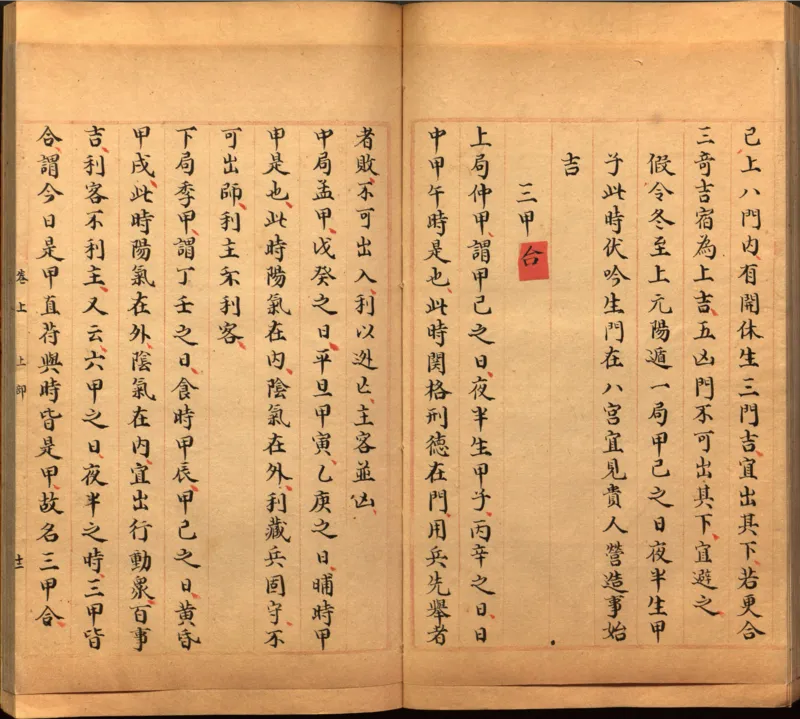 已上八門內有開休生三門吉宜出其下若更合
三竒吉宿為上吉五凶門不可出其下宜避之
假令冬至上元陽遁一局甲己之日夜半生甲
子此時伏吟生門在八宮宜見貴人營造事始
吉
三甲合
上局仲甲謂甲己之日夜半生甲子丙辛之日日
中甲午時是也此時関格刑德在門用兵先舉者
者敗不可出入利以逃亡主客並凶
中局孟甲戊癸之日平旦甲寅乙庚之日晡時甲
申是也此時陽氣在內陰氣在外利藏兵固守不
可出師利主不利客
下局季甲謂丁壬之日食時甲辰甲己之日黃昏
甲戌此時陽氣在外陰氣在內宜出行動衆百事
吉利客不利主又云六甲之日夜半之時三甲皆
合謂今日是甲直符與時皆是甲故名三甲合
卷上 上師 十一